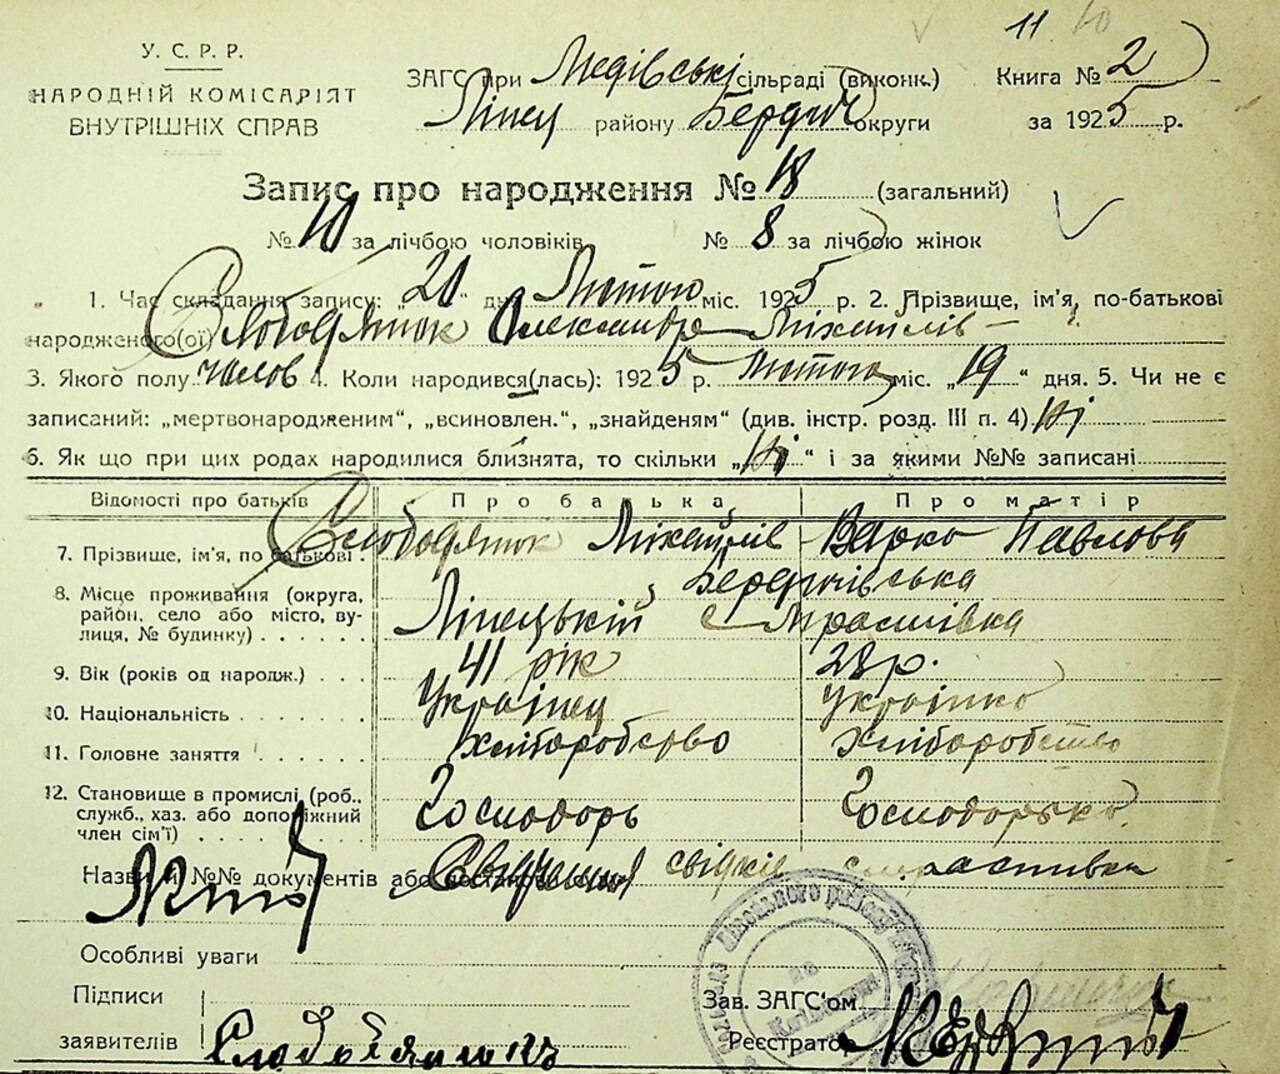 11 10
У. С. Р. Р.
НАРОДНІЙ КОМІСАРІЯТ
ВНУТРІШНІХ СПРАВ
ЗАГС при Медівські сільраді (виконк.) Книга № 2
Ліпец району Бердич округи за 1925 р.
Запис про народження № 18 (загальний)
№ 10 за лічбою чоловіків № 8 за лічбою жінок
1. Час складання запису: „20“ дн Лютого міс. 1925 р. 2. Прізвище, ім’я, по-батькові
народженого(ої) Слободянюк Олександр Міхайлів
3. Якого полу чолов 4. Коли народився(лась): 1925 р. Лютого міс. „19“ дня. 5. Чи не є
записаний: „мертвонародженим“, „всиновлен.“, „знайденям“ (див. інстр. розд. III п. 4) Ні
6. Як що при цих родах народилися близнята, то скільки „Ні“ і за якими №№ записані
Відомості про батьків Про батька Про матір
7. Прізвище, ім’я, по батькові . Слободянюк Міхайлів Варка Павлова
8. Місце проживання (округа, район, село або місто, вулиця, № будинку) Бердичівська
Ліпецькій с
9. Вік (років од народж.) 41 рік 28 р.
10. Національність Українец Українка
11. Головне заняття Хліборобство Хліборобство
12. Становище в промислі (роб., служб., хаз. або допоміжний член сім’ї) Господорь Господорька
Назви й №№ документів або свідків
Особливі уваги
Підписи
заявителів Слободянюк
Зав. ЗАГС‘ом
Реєстратор